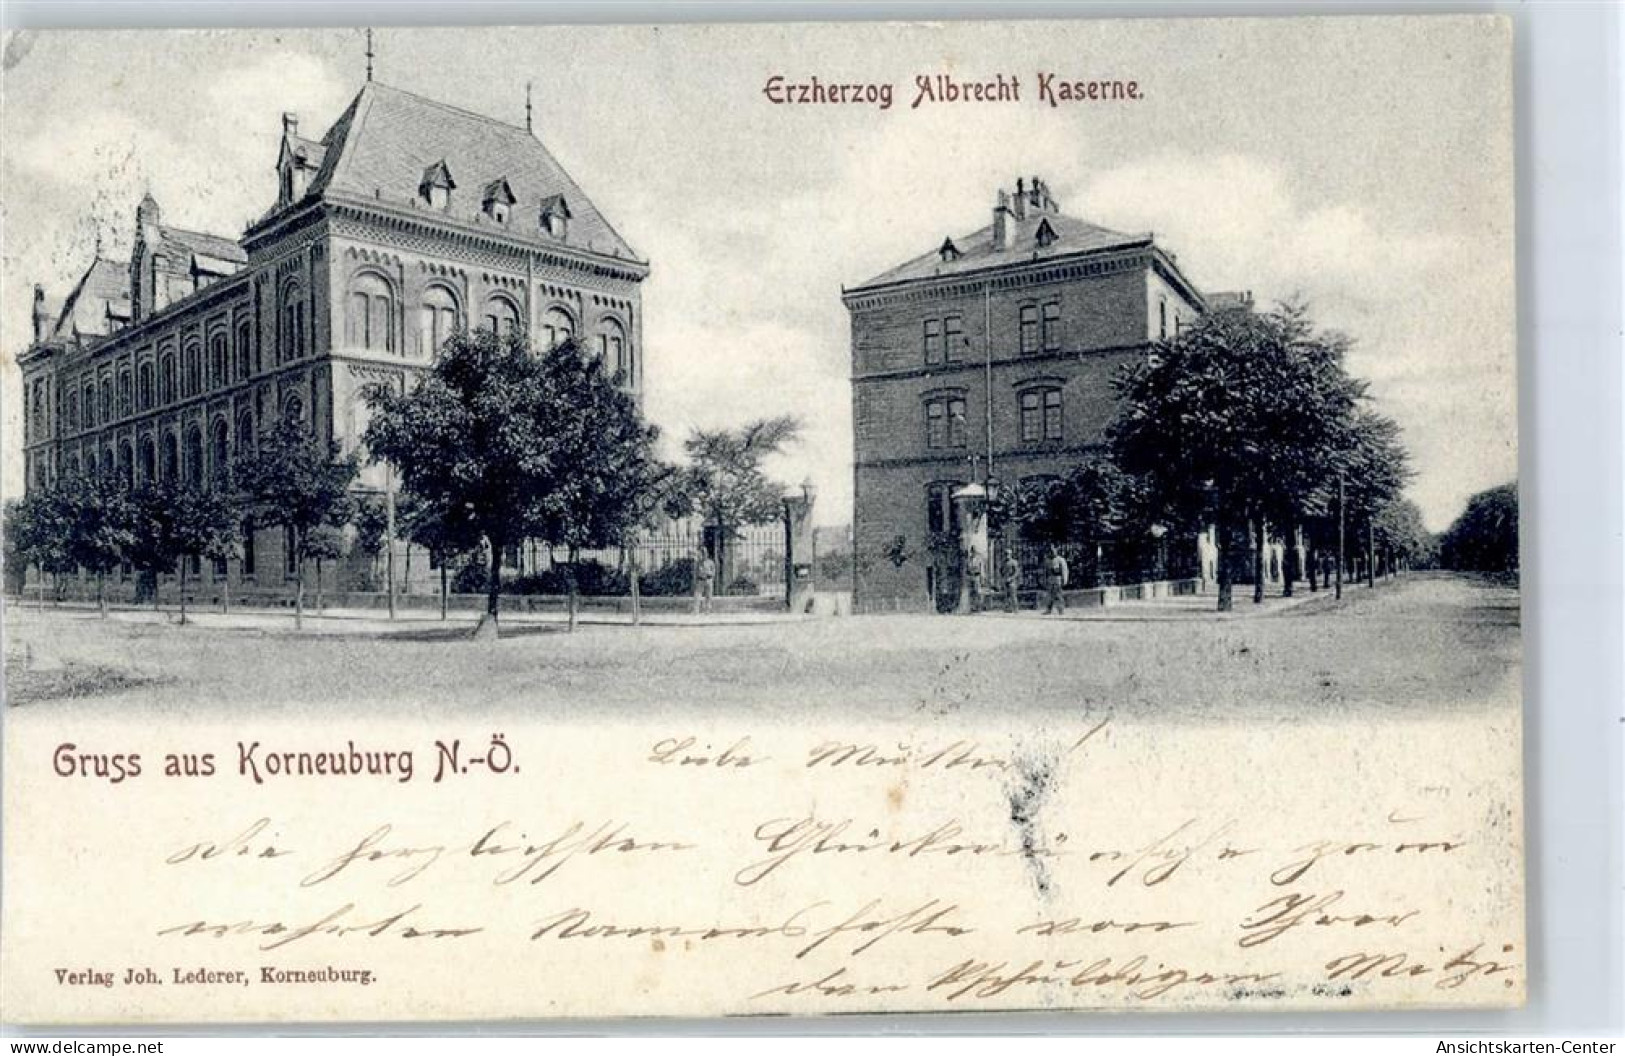 Erzherzog Albrecht Kaserne.
Gruss aus Korneuburg N.-Ö.
Liebe Mutter!
Die herzlichsten Glückwünsche zum
werten Namensfeste von Ihrer
Mitzi.
Verlag Joh. Lederer, Korneuburg.
www.oldthing.com
Ansichtskarten-Center